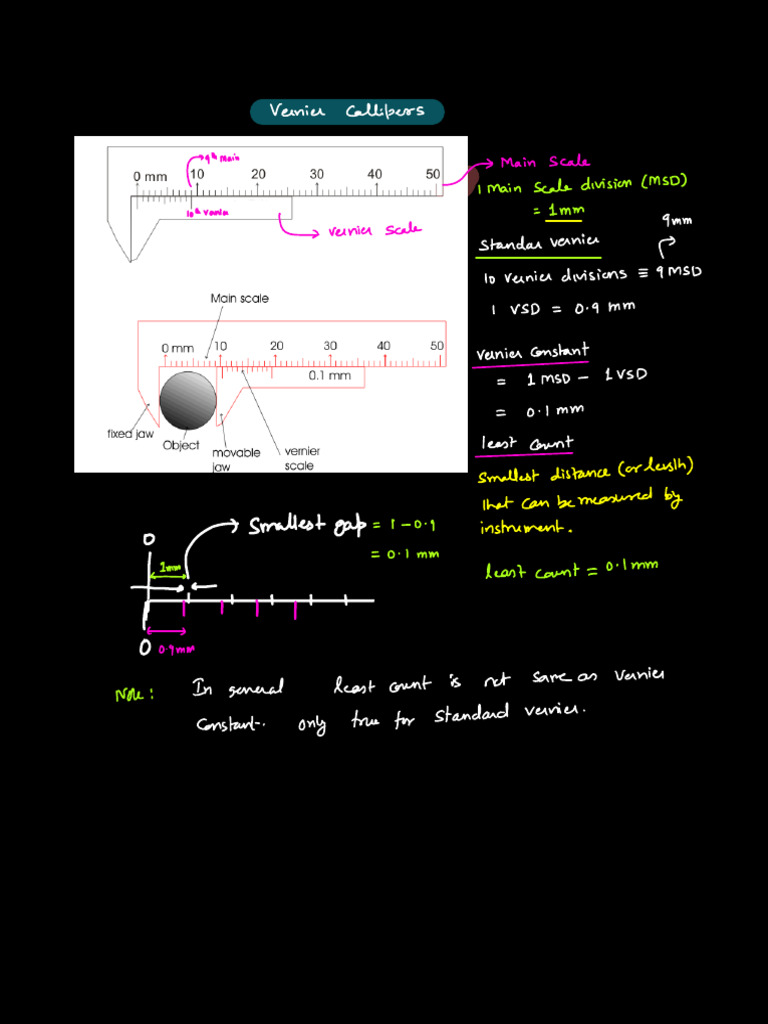 Vernier Callipers
9th Main
0 mm 10 20 30 40 50
10th Vernier
Vernier Scale
Main scale
0 mm 10 20 30 40 50
0.1 mm
fixed jaw
Object
movable
jaw
vernier
scale
Main Scale
1 Main Scale division (MSD)
= 1mm
Standar Vernier
9mm
10 Vernier divisions ≡ 9 MSD
1 VSD = 0.9 mm
Vernier Constant
= 1 MSD - 1 VSD
= 0.1 mm
least Count
Smallest distance (or length)
that can be measured by
instrument.
least count = 0.1mm
Smallest gap = 1-0.9
= 0.1 mm
0
1mm
0
0.9mm
Note: In general least count is not same as Vernier
Constant. only true for Standard Vernier.